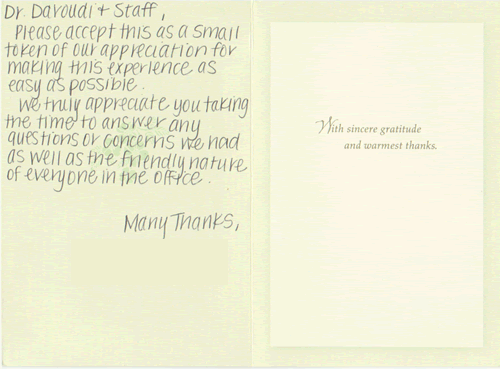 Dr. Davoudi + Staff,
Please accept this as a small
token of our appreciation for
making this experience as
easy as possible.
We truly appreciate you taking
the time to answer any
questions or concerns we had
as well as the friendly nature
of everyone in the office.
Many Thanks,
With sincere gratitude
and warmest thanks.